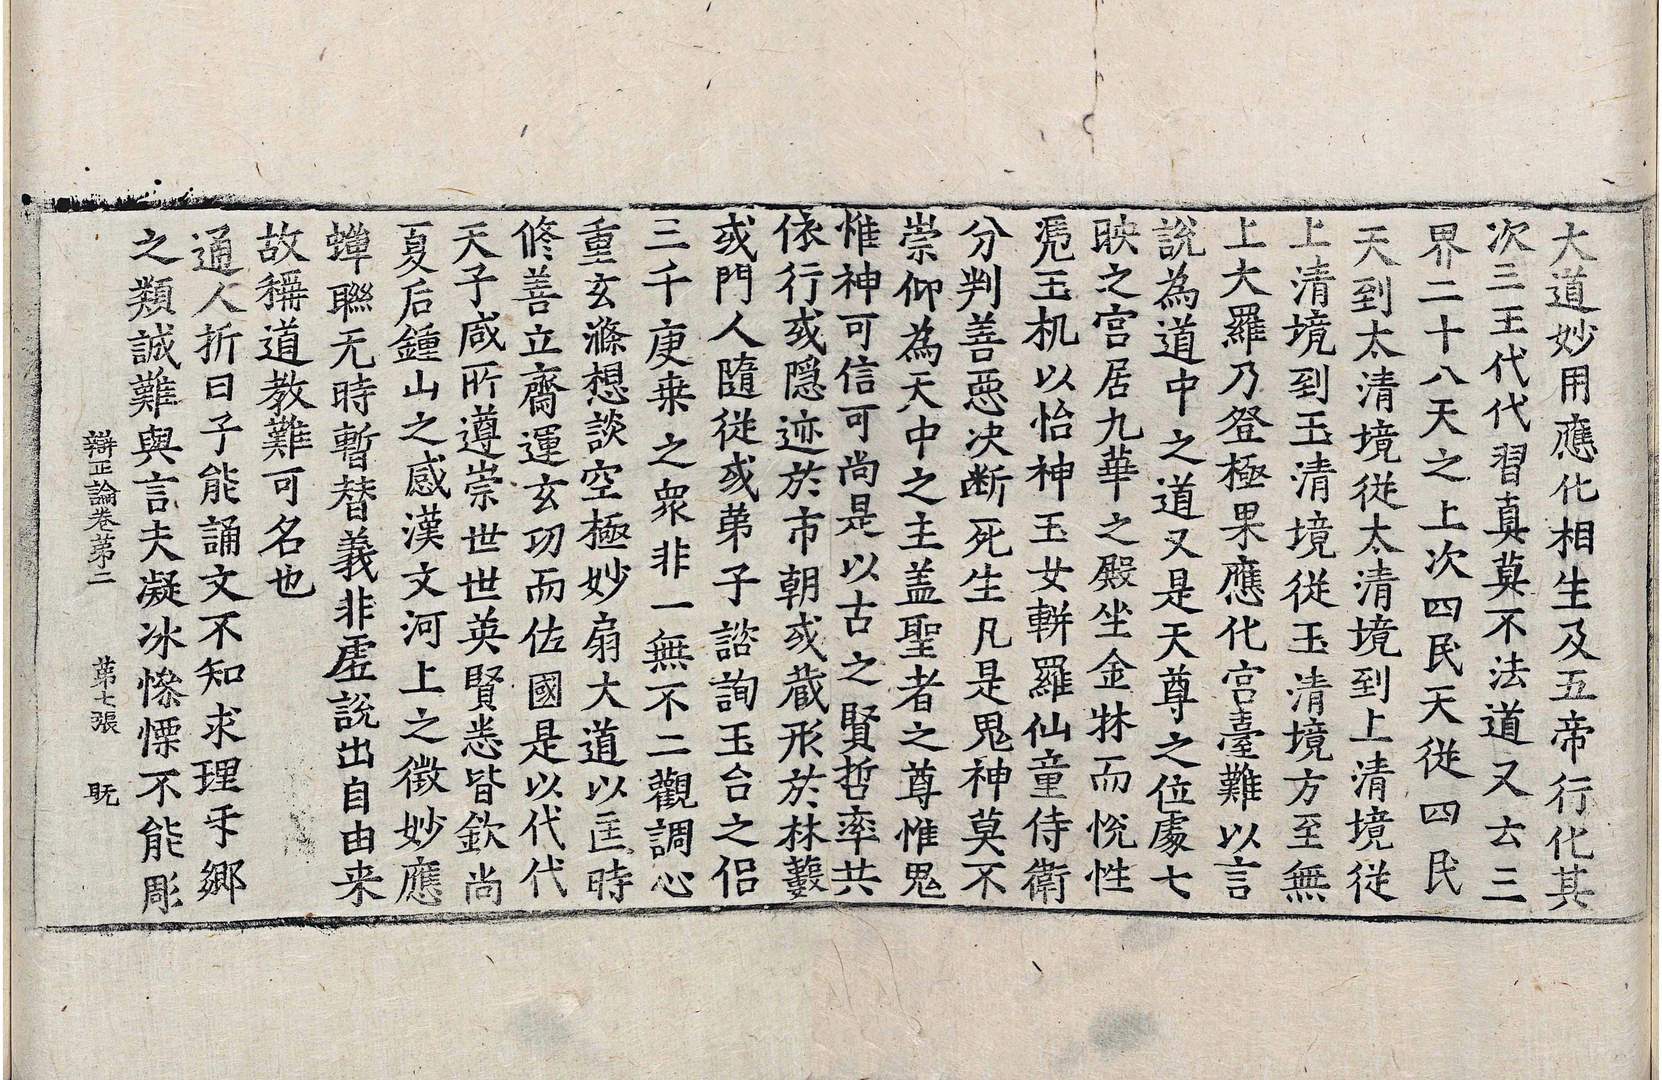 大道妙用應化相生及五帝行化其
次三王代代習真莫不法道又云三
界二十八天之上次四民天從四民
天到太清境從太清境到上清境從
上清境到玉清境從玉清境方至無
上大羅乃登極果應化宮臺難以言
說為道中之道又是天尊之位處七
映之宮居九華之殿坐金牀而悅性
凴玉机以怡神玉女軿羅仙童侍衛
分判善惡決断死生凡是鬼神莫不
崇仰為天中之主盖聖者之尊惟鬼
惟神可信可尚是以古之賢哲率共
依行或隱迹於市朝或蔵形於林藪
或門人隨從或弟子諮詢玉台之侣
三千庚桒之眾非一無不二觀調心
重玄滌想談空極妙扇大道以匡時
修善立齋運玄功而佐國是以代代
天子咸所遵崇世世英賢悉皆欽尚
夏后鍾山之感漢文河上之徵妙應
蟬聯无時暫替義非虛說出自由来
故稱道教難可名也
通人折曰子能誦文不知求理乎鄉
之類誠難與言夫凝冰慘慄不能彫
辯正論卷第二 第七張 既